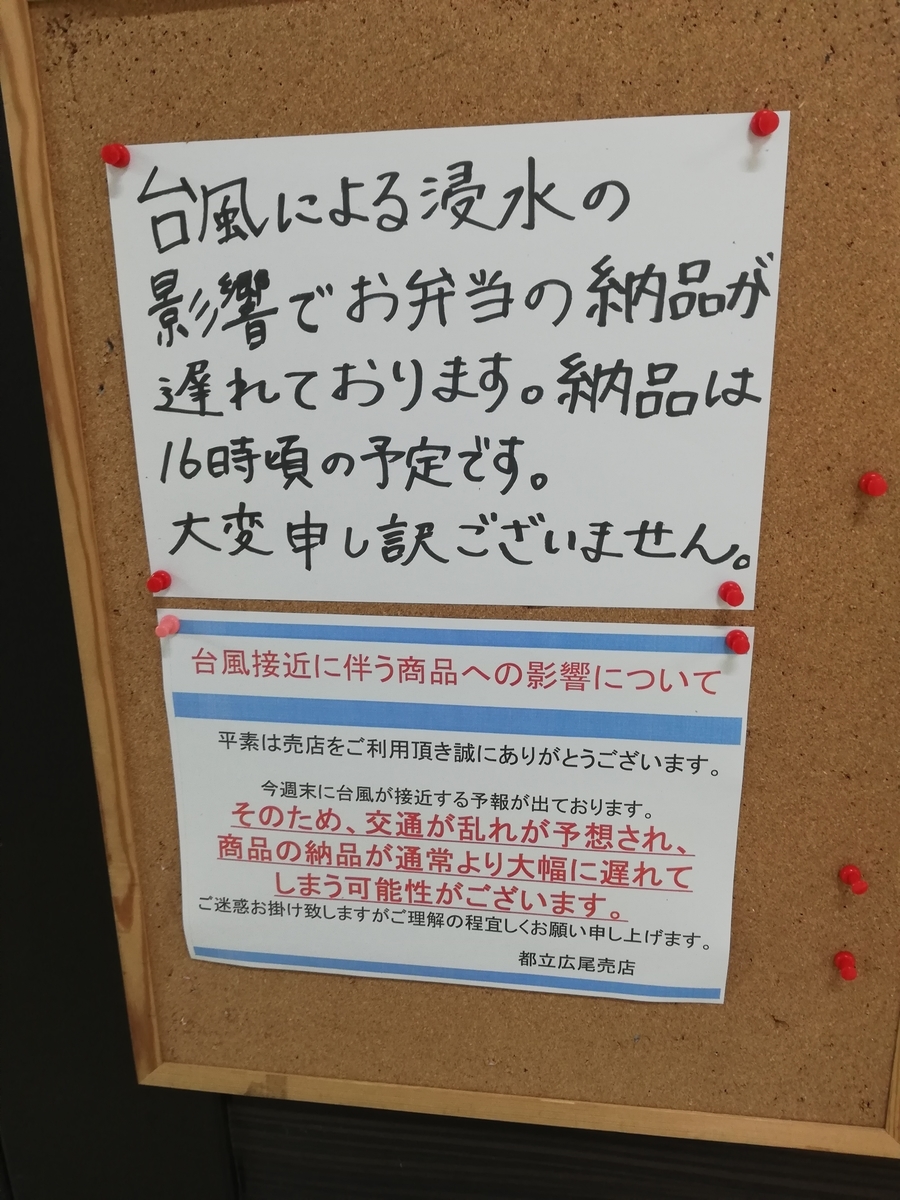 台風による浸水の
影響でお弁当の納品が
遅れております。納品は
16時頃の予定です。
大変申し訳ございません。
台風接近に伴う商品への影響について
平素は売店をご利用頂き誠にありがとうございます。
今週末に台風が接近する予報が出ております。
そのため、交通が乱れが予想され、
商品の納品が通常より大幅に遅れて
しまう可能性がございます。
ご迷惑お掛け致しますがご理解の程宜しくお願い申し上げます。
都立広尾売店